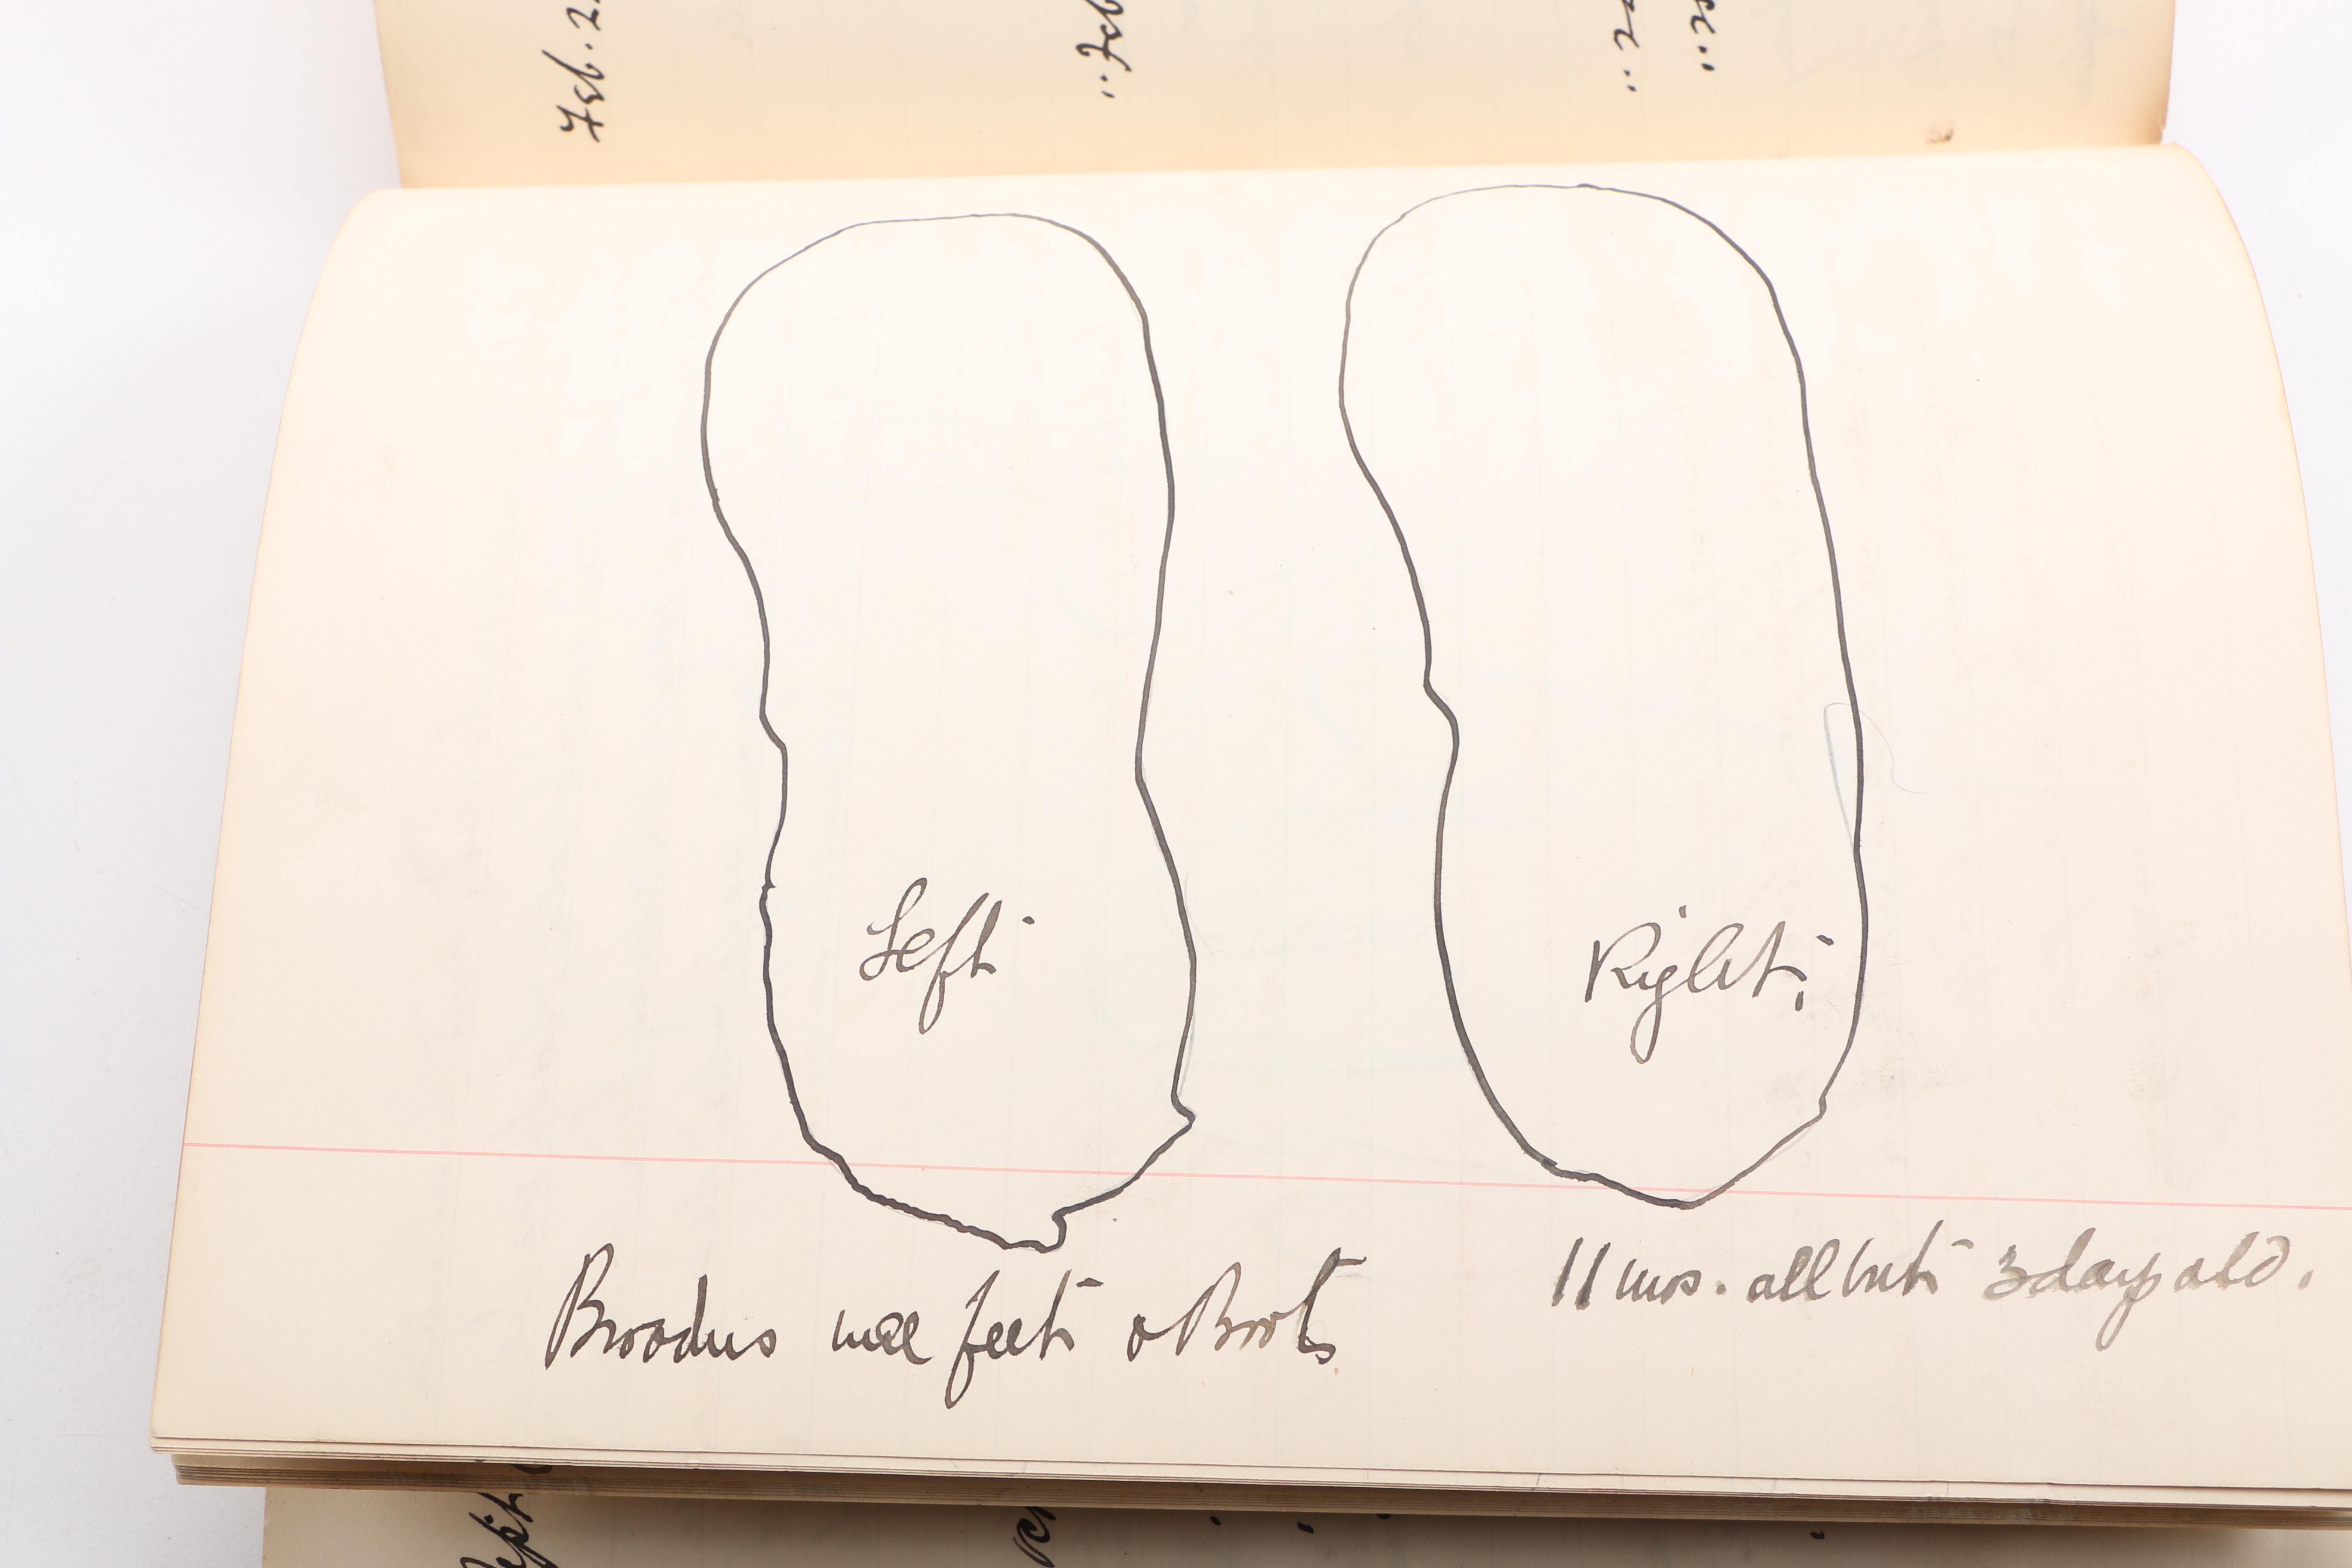 Feb. 2
" Feb
" 2
" 2
Left
Right
Broadus wee feet & Boots
11 mos. all but 3 days old.